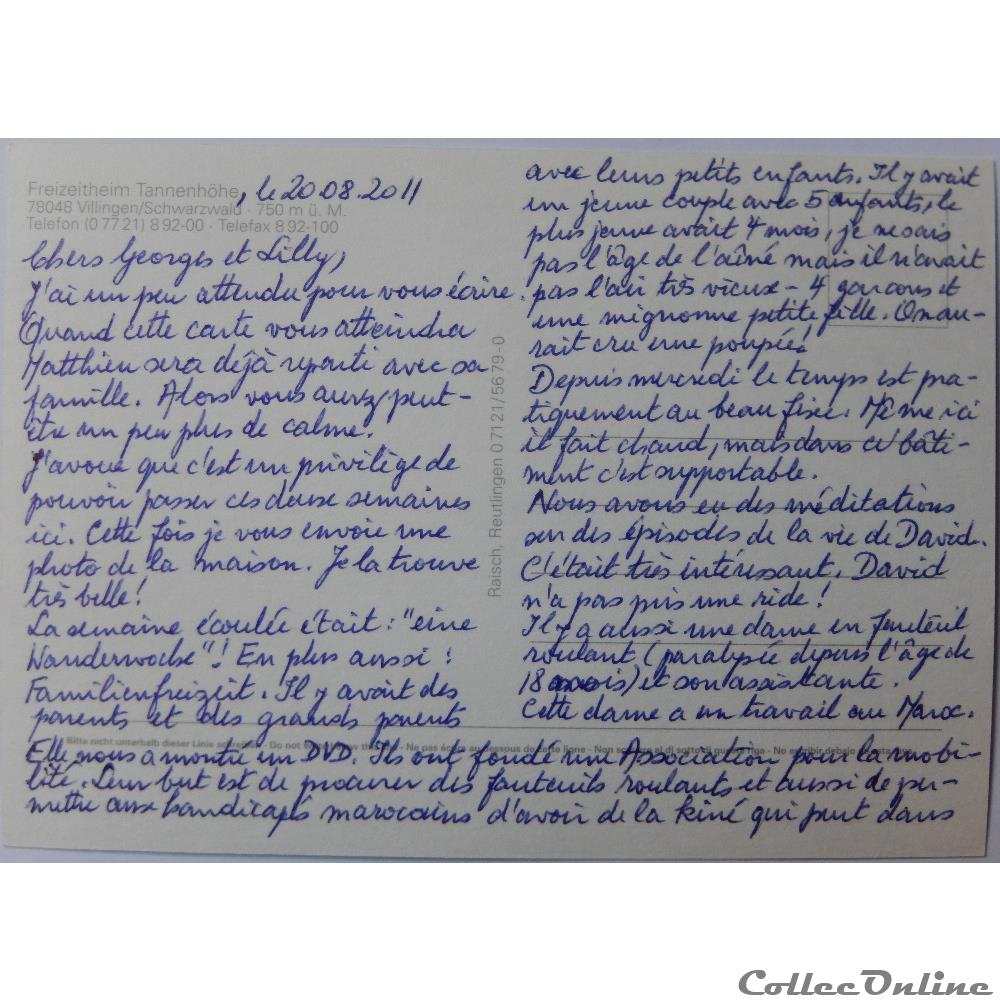 Freizeitheim Tannenhöhe
78048 Villingen/Schwarzwald · 750 m ü. M.
Telefon (0 77 21) 8 92-00 · Telefax 8 92-100
, le 20.08.2011
Chers Georges et Lilly,
J'ai un peu attendu pour vous écrire.
Quand cette carte vous atteindra
Matthieu sera déjà reparti avec sa
famille. Alors vous aurez peut-
être un peu plus de calme.
J'avoue que c'est un privilège de
pouvoir passer ces deux semaines
ici. Cette fois je vous envoie une
photo de la maison. Je la trouve
très belle!
La semaine écoulée était : "eine
Wanderwoche"! En plus aussi :
Familienfreizeit. Il y avait des
parents et des grands parents
avec leurs petits enfants. Il y avait
un jeune couple avec 5 enfants, le
plus jeune avait 4 mois, je ne sais
pas l'âge de l'aîné mais il n'avait
pas l'air très vieux - 4 garçons et
une mignonne petite fille. On au-
rait cru une poupée!
Depuis mercredi le temps est pra-
tiquement au beau fixe. Même ici
il fait chaud, mais dans ce bâti-
ment c'est supportable.
Nous avons eu des méditations
sur des épisodes de la vie de David.
C'était très intéressant. David
n'a pas pris une ride!
Il y a aussi une dame en fauteuil
roulant (paralysée depuis l'âge de
18 mois) et son assistante.
Cette dame a un travail au Maroc.
Elle nous a montré un DVD. Ils ont fondé une Association pour la mobi-
lité. Leur but est de procurer des fauteuils roulants et aussi de per-
mettre aux handicapés marocains d'avoir de la kiné qui peut dans
Raisch, Reutlingen 0 71 21/56 79-0
Bitte nicht unterhalb dieser Linie schreiben - Do not write below this line - Ne pas écrire au-dessous de cette ligne - Non scrivere al di sotto di questa riga - No escribir debajo de esta
CollecOnline